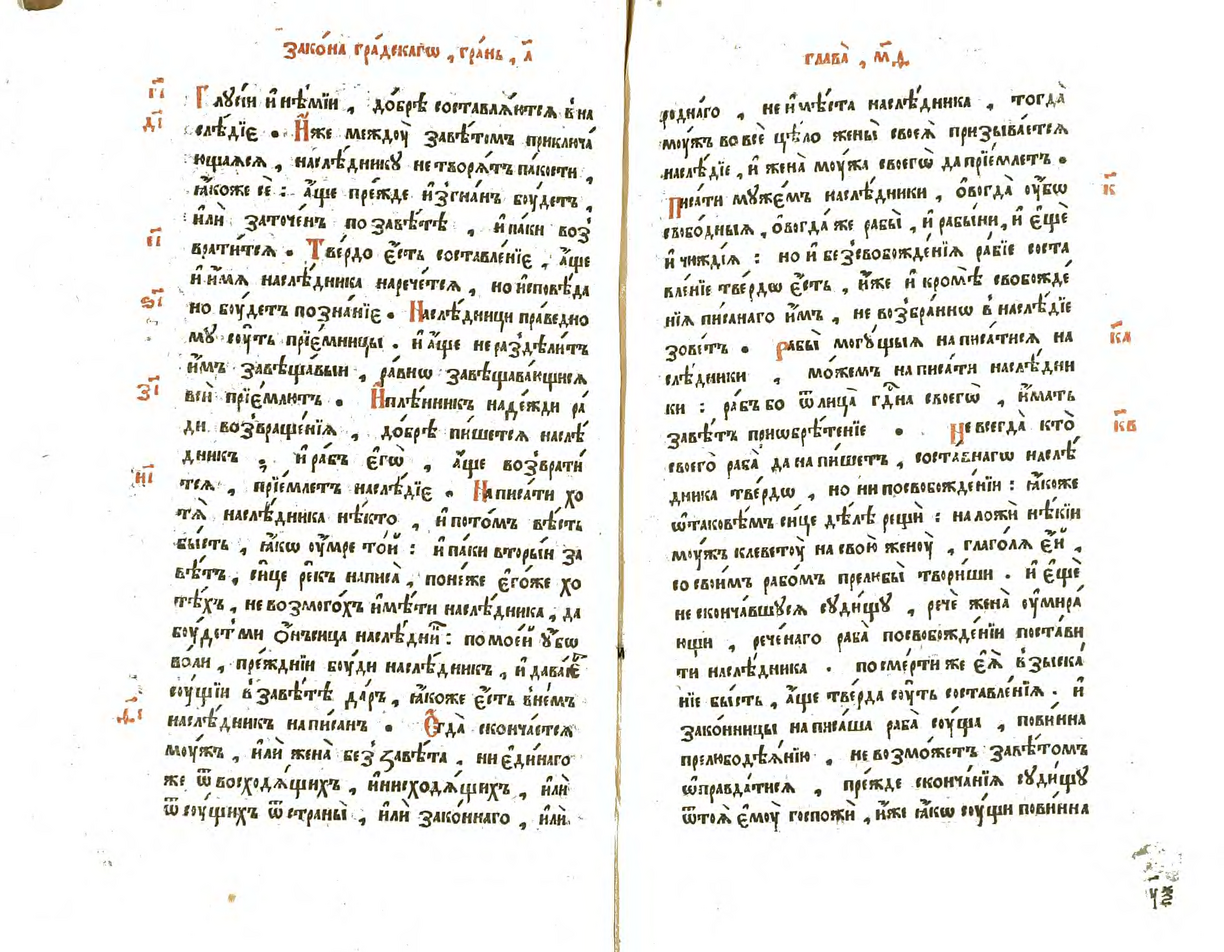 Зако́на гра́дскагѡ, гра́нь, л҃
гі҃
Глуси́и и҆ нѣмі́и, до́брѣ составлѧ́ютсѧ в̾ на
ді҃
слѣ́дїє. И҆̀же между̀ завѣ́томъ приключа́
ющаѧсѧ, наслѣ́днику не творѧ́тъ па́кости,
ꙗ҆́коже сѐ: а҆́ще пре́жде и҆згна́нъ бꙋ́детъ,
и҆лѝ заточе́нъ по завѣ́тѣ, и҆ па́ки воз̾
еі҃
врати́тсѧ. Тве́рдо є҆́сть составле́нїє, а҆́ще
и҆ и҆́мѧ наслѣ́дника нарече́тсѧ, но и҆сповѣ́да
ѕі҃
но бꙋ́детъ позна́нїє. Наслѣ́дници пра́ведно
му сꙋ́ть прїє́мницы. и҆ а҆́ще не раздѣли́тъ
и҆̀мъ завѣща́выи, ра́внѡ завѣщава́ющиисѧ
зі҃
всѝ прїє́млютъ. И҆ плѣ́нникъ наде́жди ра́
ди возвраще́нїѧ, до́брѣ пи́шетсѧ наслѣ́
дникъ; и҆ ра́бъ є҆гѡ̀, а҆́ще возврати́
иі҃
тсѧ, прїе́млетъ наслѣ́дїє. Написа́ти хо
тѧ̀ наслѣ́дника нѣ́кто, и҆ пото́мъ вѣ́сть
бы́сть, ꙗ҆́кѡ ᲂу҆́мре то́й: и҆ па́ки вторы́и за
вѣ́тъ, си́це ре́къ написа̀, поне́же є҆го́же хо
тѣ́хъ, не возмого́хъ и҆мѣ́ти наслѣ́дника, да
бꙋ́детъ ми ѻ҆́нъсица наслѣ́дни҃: по мое́й ᲂу҆́бѡ
во́ли, пре́ждніи бꙋ́ди наслѣ́дникъ, и҆ дава́є
сꙋ́щіи в̾ завѣ́тѣ да́ръ, ꙗ҆́коже є҆́сть в не́мъ
ѳі҃
наслѣ́дникъ написа́нъ. Є҆гда̀ сконча́етсѧ
мꙋ́жъ, и҆лѝ жена̀ без̾ завѣ́та, ни є҆ди́наго
же ѿ восходѧ́щихъ, и҆ нисходѧ́щихъ, и҆лѝ
ѿ сꙋ́щихъ ѿ страны̀, и҆лѝ зако́ннаго, и҆лѝ
глава̀, м҃д
ро́днаго, не и҆мѣ́ста наслѣ́дника, тогда̀
мꙋ́жъ во всѐ цѣ́ло жены̀ своеѧ̀ призыва́етсѧ
наслѣ́дїе, и҆ жена̀ мꙋ́жа своегѡ̀ да прїе́млетъ.
к҃
Писа́ти муже́мъ наслѣ́дники, ѻ҆вогда̀ ᲂу҆́бѡ
свобо́дныѧ, ѻ҆вогда́ же рабы̀, и҆ рабы́ни, и҆ є҆щѐ
и҆ чижді́ѧ: но и҆ без̾свобожде́нїѧ ра́бїе соста
вле́нїе тве́рдѡ є҆́сть, и҆́же и҆ кромѣ̀ свобожде́
нїѧ писа́наго и҆́мъ, не возбра́ннѡ в̾ наслѣ́дїе
к҃а
зове́тъ. Рабы̀ могꙋ́щыѧ написа́тисѧ на
слѣ́дники, мо́жемъ написа́ти наслѣ́дни
ки: ра́бъ бо ѿ лица̀ гд҃на своегѡ̀, и҆́мать
к҃в
завѣ́тъ приѡбрѣ́тенїе. Не всегда̀ кто̀
своего̀ раба̀ да напи́шетъ, соста́внагѡ наслѣ́
дника тве́рдѡ, но ни посвобожде́нїи: ꙗ҆́коже
ѡ҆ таковѣ́мъ си́це дѣ́лѣ рещѝ: наложѝ нѣ́кїи
мꙋ́жъ клеветꙋ̀ на свою̀ женꙋ̀, глаго́лѧ є҆́й,
со свои́мъ рабо́мъ прелюбы̀ твори́ши. и҆ є҆щѐ
не сконча́вшусѧ сꙋди́щу, речѐ жена̀ ᲂу҆мира́
ющи, рече́наго раба̀ посвобожде́нїи поста́ви
ти наслѣ́дника. по сме́рти же є҆ѧ̀ взыска́
нїе бы́сть, а҆́ще тве́рда сꙋ́ть составле́нїѧ. и҆
зако́нницы написа́ша раба̀ сꙋ́ща, пови́нна
прелюбодѣѧ́нїю, не возмо́жетъ завѣ́томъ
ѡ҆правда́тисѧ, пре́жде сконча́нїѧ сꙋди́щу
ѿ тоѧ̀ є҆мꙋ̀ госпожѝ, и҆́же ꙗ҆́кѡ сꙋ́щи пови́нна